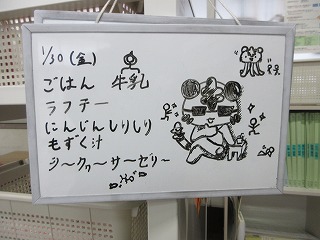 1/30(金)
ごはん 牛乳
ラフテー
にんじんしりしり
もずく汁
シ〜クヮーサーゼリー